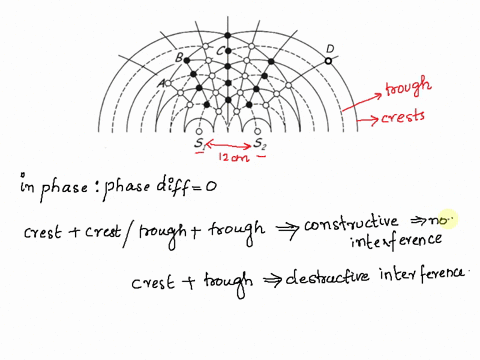 D
C
B
A
trough
crests
S₁ S₂
12cm
in phase : phase diff = 0
crest + crest / trough + trough ⇒ constructive ⇒ no
interference
crest + trough ⇒ destructive interference.